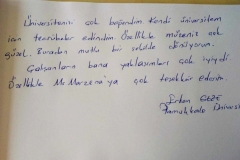 Üniversitenizi çok beğendim. Kendi üniversitem
için tecrübeler edindim. Özellikle müzeniz çok
güzel. Buradan mutlu bir şekilde dönüyorum.
Çalışanların bana yaklaşımları çok iyiydi.
Özellikle Mr. Marzena'ya çok teşekkür ederim.
Erkan
Pamukkale Üniversi